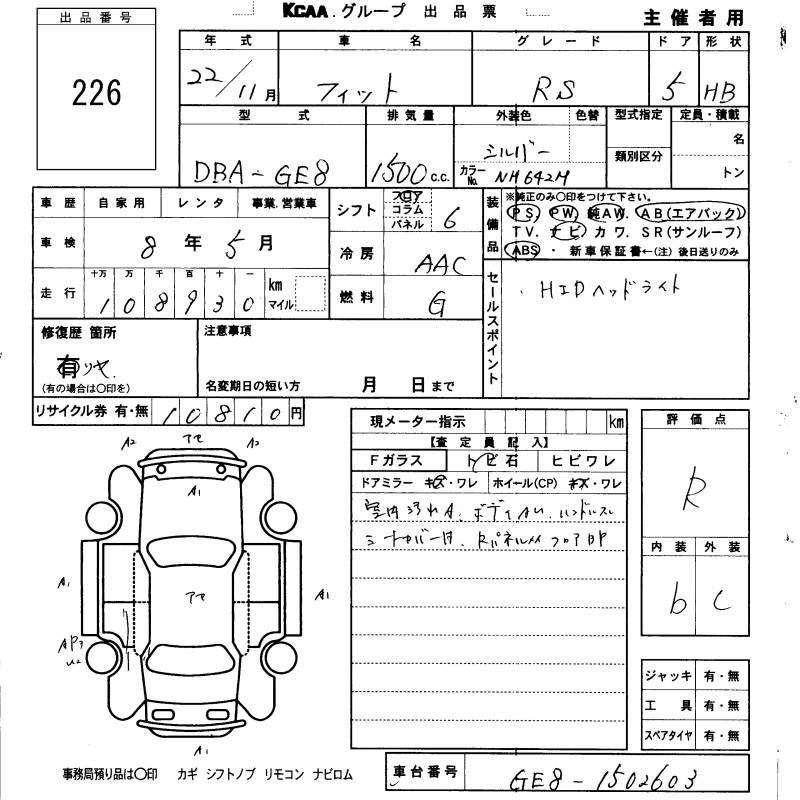 KCAA.グループ 出品票
主催者用
出品番号
226
年式 車名 グレード ドア 形状
22/11月 フィット RS 5 HB
型式 排気量 外装色 色替 型式指定 定員・積載
DBA-GE8 1500c.c. シルバー 名
カラーNo. NH642M 類別区分 トン
車歴 自家用 レンタ 事業.営業車
シフト フロア コラム パネル 6
車検 8年5月
冷房 AAC
走行 十万 万 千 百 十 一
108930 km マイル
燃料 G
装備品 ※純正のみ〇印をつけて下さい。
PS, PW, 純AW. AB(エアバック)
TV. ナビ カワ. SR(サンルーフ)
ABS ・ 新車保証書←(注)後日送りのみ
セールスポイント
.HIDヘッドライト
修復歴 箇所
有リヤ.
(有の場合は〇印を)
注意事項
名変期日の短い方 月 日まで
リサイクル券 有・無 10810円
現メーター指示 km
【査定員記入】
Fガラス トビ石 ヒビワレ
ドアミラー キズ・ワレ ホイール(CP) キズ・ワレ
室内汚れA、ボディAU、ハンドルスレ
シートカバー付、RパネルM フロアP
評価点
R
内装 外装
b C
A2 アセ A2
A1
A1 アセ A1
AP3
U2
A1
ジャッキ 有・無
工具 有・無
スペアタイヤ 有・無
事務局預り品は〇印 カギ シフトノブ リモコン ナビロム
車台番号 GE8-1502603